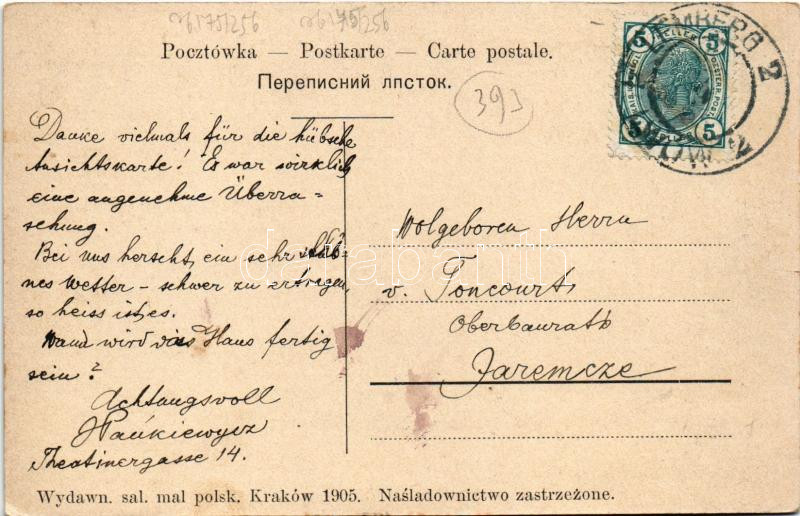 26175/256 26175/256
Pocztówka — Postkarte — Carte postale.
Переписний лпсток.
391
5 HELLER 5
5 5
LEMBERG 2
LWÓW 2
Danke vielmals für die hübsche
Ansichtskarte! Es war wirklich
eine angenehme Überra-
schung.
Bei uns herscht, ein sehr schö-
nes Wetter – schwer zu ertragen,
so heiss ist es.
Wann wird das Haus fertig
sein?
Achtungsvoll
Theatinergasse 14.
Wolgeboren Herrn
v. Foncourt,
Oberbaurath
Jaremcze
darabanth
Wydawn. sal. mal polsk. Kraków 1905. Naśladownictwo zastrzeżone.